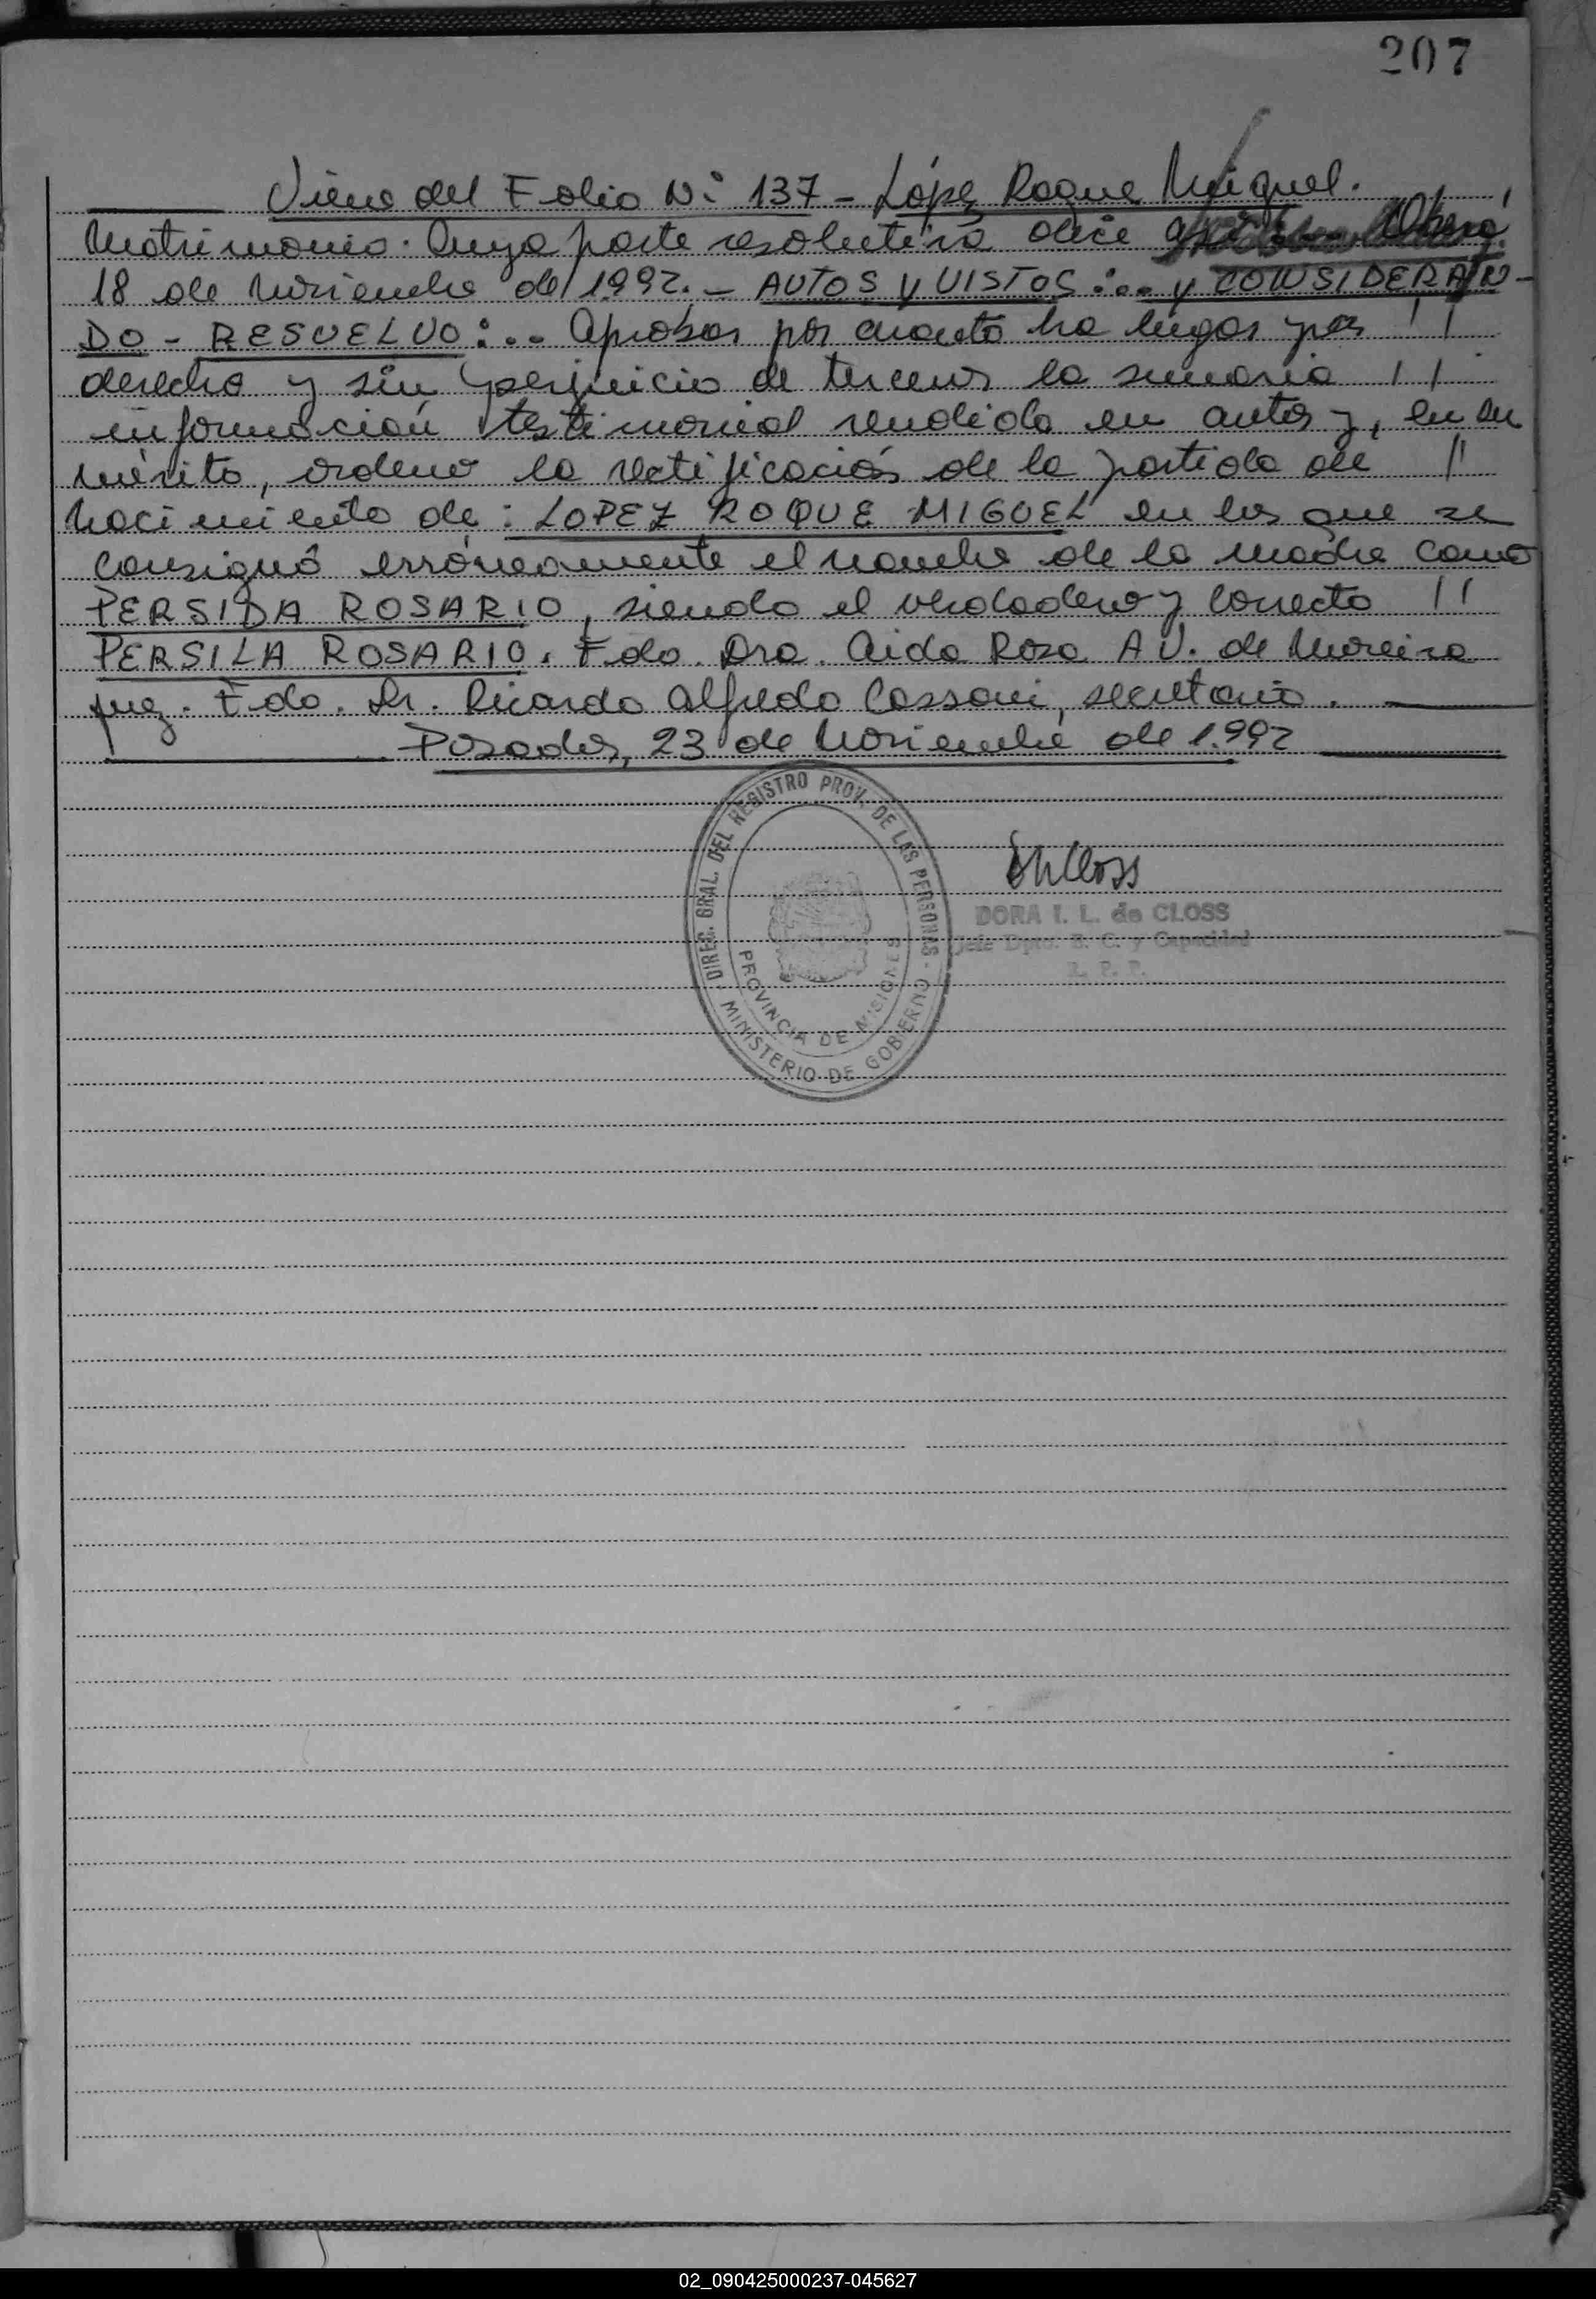 207
Viene del Folio N: 137 - López Roque Miguel.
Matrimonio. Cuya parte resolutiva dice Oberá
18 de Noviembre de 1992. - AUTOS y VISTOS:.. y CONSIDERAN-
DO - RESUELVO:.. Aprobar por cuanto ha lugar por //
derecho y sin perjuicio de terceros la sumaria //
información testimonial rendida en autos y, en su
mérito, ordeno la rectificación de la partida de //
nacimiento de: LOPEZ ROQUE MIGUEL en los que se
consignó erróneamente el nombre de la madre como
PERSIDA ROSARIO, siendo el verdadero y correcto //
PERSILA ROSARIO. Fdo. Dra. Aida Rosa A.V. de Moreira
juez. Fdo. Dr. Ricardo Alfredo Cassoni, secretario.
Posadas, 23 de Noviembre de 1.992
DIREC. GRAL. DEL REGISTRO PROV. DE LAS PERSONAS -
MINISTERIO DE GOBIERNO
PROVINCIA DE MISIONES
DORA I. L. de CLOSS
Jefe Dpto. E. C. y Capacidad
R. P. P.
02_090425000237-045627